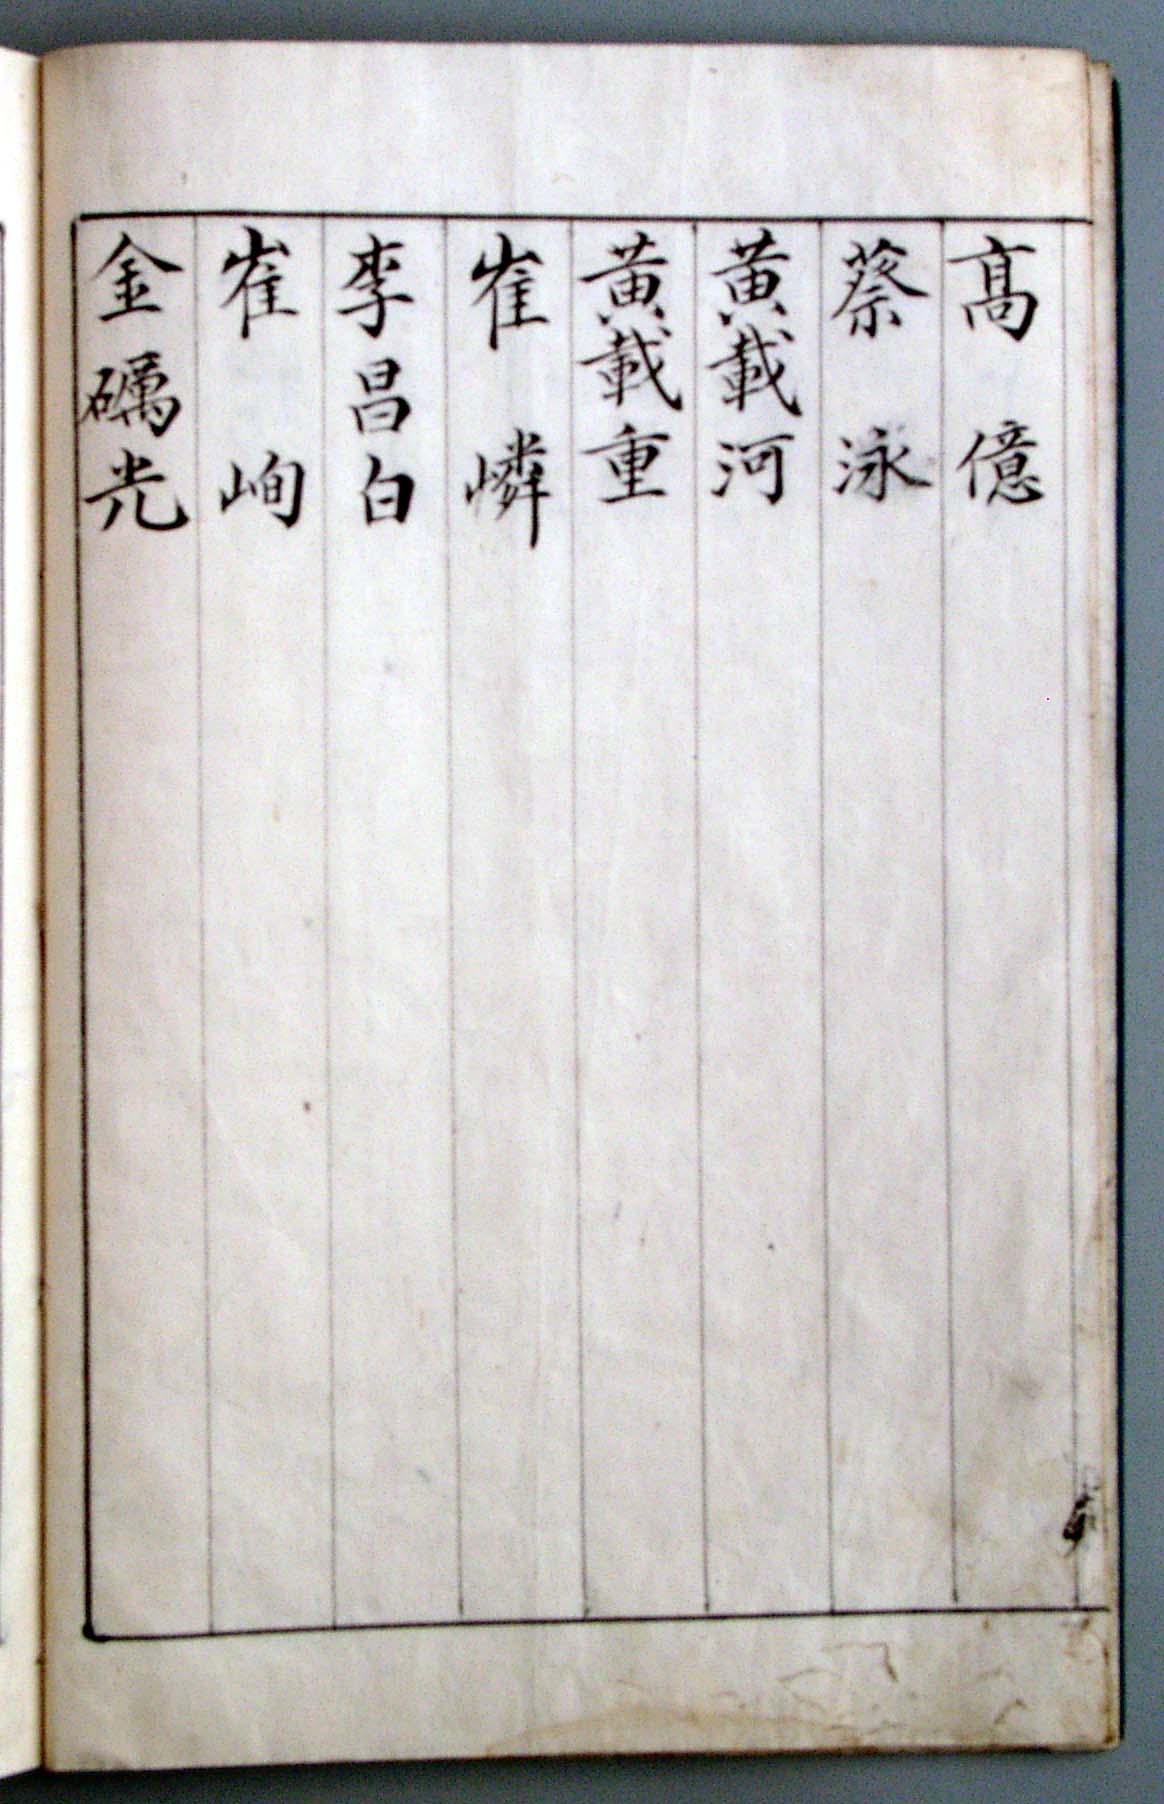 髙億
蔡泳
黄載河
黄載重
崔嶙
李昌白
崔峋
金礪光